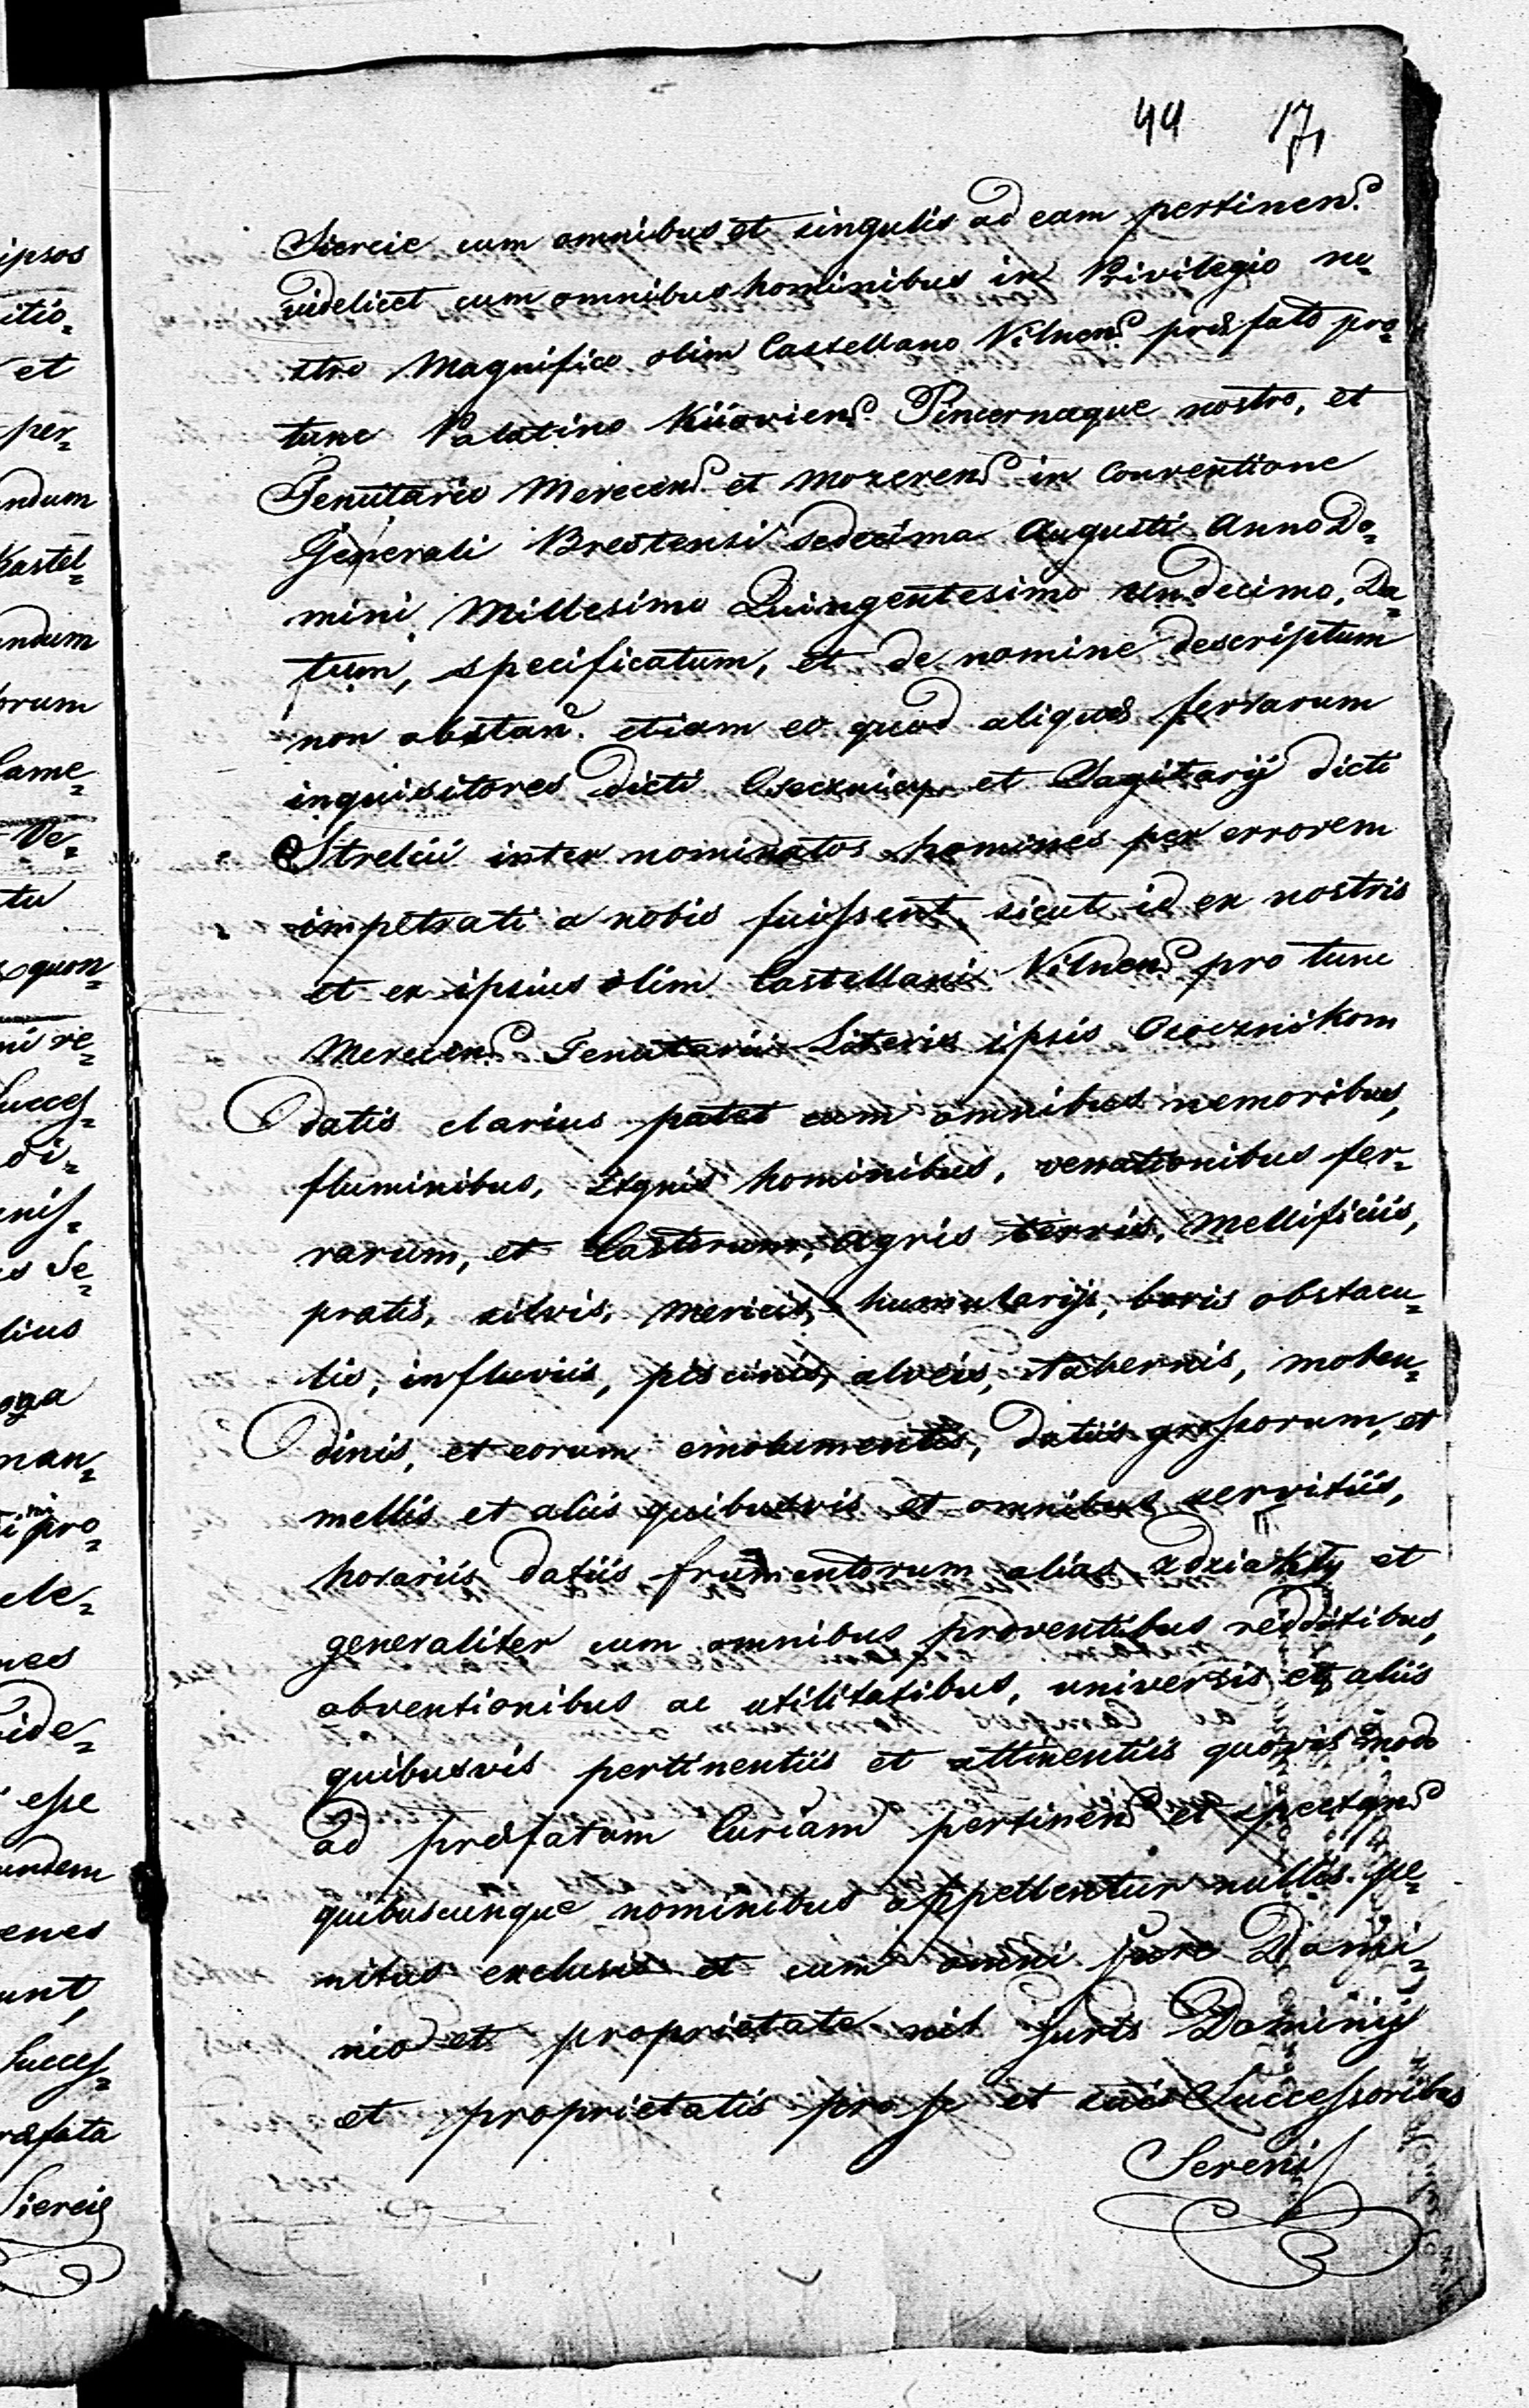 44 17,
Siercie cum omnibus et singulis ad eam pertinen.
videlicet cum omnibus hominibus in Privilegio no=
stro Magnifico olim Castellano Vilnen. præfato pro
tunc Palatino Kiiovien. Pincernæque nostro, et
Tenutario Merecen. et Mozeren. in Conventione
Generali Brestensi sedecima Augusti Anno Do=
mini Millesimo Quingentesimo undecimo, Da=
tum, specificatum, et de nomine descriptum
non obstan. etiam eo quod aliquos ferrarum
inquisitores dicti Osecznicy et Sagitarÿ dicti
Strelcii inter nominatos homines per errorem
impetrati a nobis fuissent, sicut id ex nostris
et ex ipsius olim Castellani Vilnen. pro tunc
Merecen. Tenutarii Literis ipsis Osocznikom
datis clarius patet cum omnibus nemoribus,
fluminibus, hominibus, venationibus fer=
rarum, et Castorum, agris terris, mellificiis,
pratis, silvis, mericis, humulariis, boris obstacu=
lis, influviis, piscinis, alveis, tabernis, molen=
dinis, et eorum emolumentis, datiis grossorum, et
mellis et aliis quibusvis et omnibus servitiis,
horariis datiis frumentorum alias zdziakty et
generaliter cum omnibus proventibus redditibus,
obventionibus ac utilitatibus, universis et aliis
quibusvis pertinentiis et attinentiis quovis modo
ad præfatam Curiam pertinen. et spectan.
quibuscunque nominibus appellentur nullis pe=
nitus exclusis et cum omni jure Domi=
nio et proprietate nil Juris Dominÿ
et proprietatis pro se et suis Successoribus
Sereniss
ipsos
itio=
et
per=
ndum
Kastel=
ndum
orum
Came=
Ve=
tu
quon=
ni re=
Success=
di=
Se=
lius
nan=
pro=
cle=
nes
ide=
esse
undem
enes
unt,
Success=
ræfata
Siercie